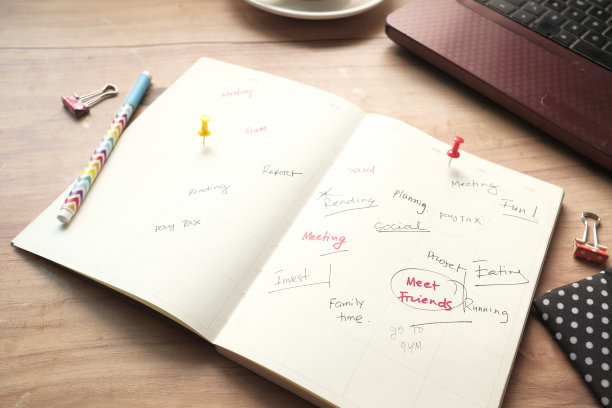 Meeting
Exam
Report
Reading
pay Tax
Social
Meeting
Reading
Planning
Fun!
Social
pay TAX
Meeting
Project
Eating
Invest
Meet
Friends
Family
time.
Running
go TO
gym